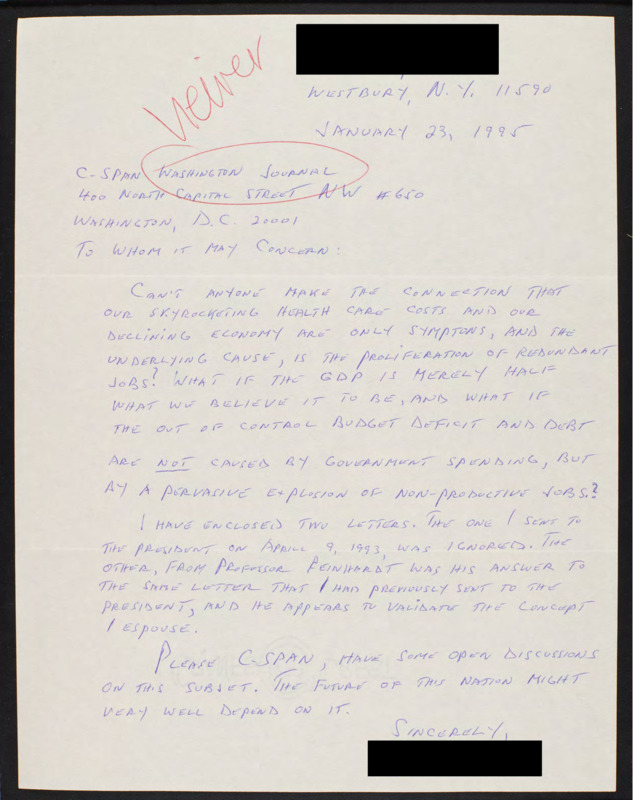 Veiver
WESTBURY, N.Y. 11590
JANUARY 23, 1995
C-SPAN WASHINGTON JOURNAL
400 NORTH CAPITAL STREET NW #650
WASHINGTON, D.C. 20001
TO WHOM IT MAY CONCERN:
CAN'T ANYONE MAKE THE CONNECTION THAT
OUR SKYROCKETING HEALTH CARE COSTS AND OUR
DECLINING ECONOMY ARE ONLY SYMPTONS, AND THE
UNDERLYING CAUSE, IS THE PROLIFERATION OF REDUNDANT
JOBS? WHAT IF THE GDP IS MERELY HALF
WHAT WE BELIEVE IT TO BE, AND WHAT IF
THE OUT OF CONTROL BUDGET DEFICIT AND DEBT
ARE NOT CAUSED BY GOVERNMENT SPENDING, BUT
BY A PERVASIVE EXPLOSION OF NON-PRODUCTIVE JOBS?
I HAVE ENCLOSED TWO LETTERS. THE ONE I SENT TO
THE PRESIDENT ON APRIL 9, 1993, WAS IGNORED. THE
OTHER, FROM PROFESSOR REINHARDT WAS HIS ANSWER TO
THE SAME LETTER THAT I HAD PREVIOUSLY SENT TO THE
PRESIDENT, AND HE APPEARS TO VALIDATE THE CONCEPT
I ESPOUSE.
PLEASE C-SPAN, HAVE SOME OPEN DISCUSSIONS
ON THIS SUBJET. THE FUTURE OF THIS NATION MIGHT
VERY WELL DEPEND ON IT.
SINCERELY,